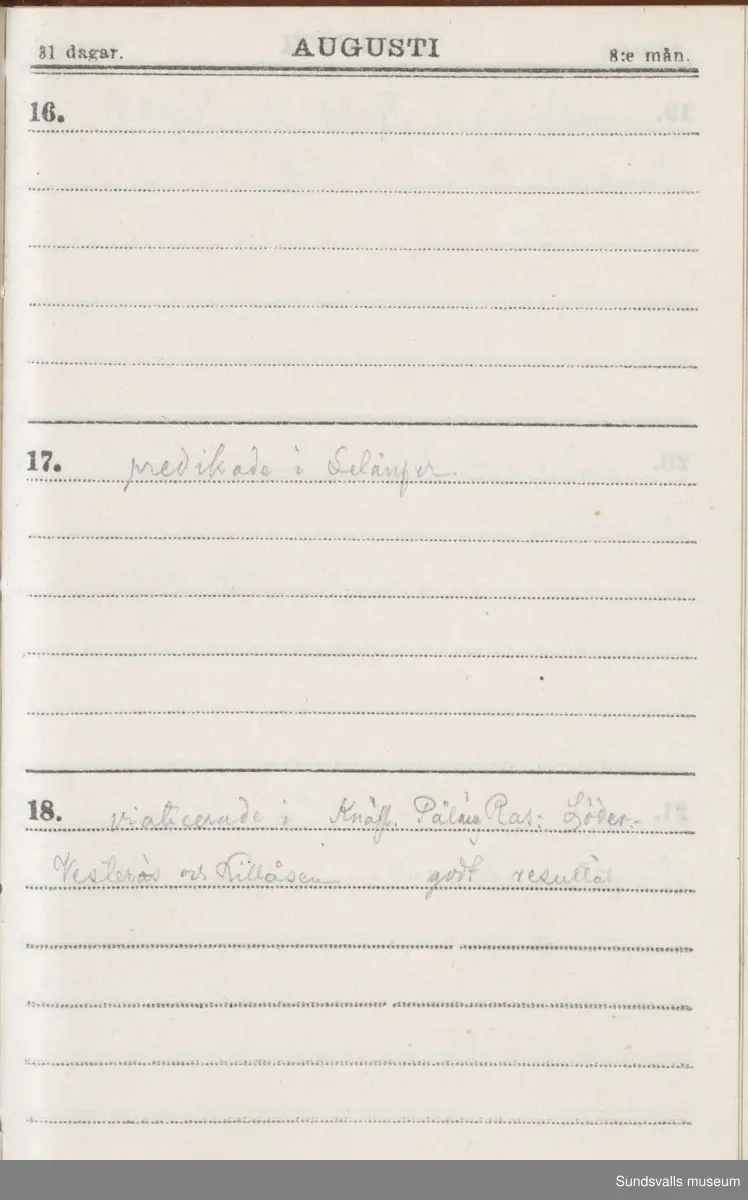 31 dagar. AUGUSTI 8:e mån.
16.
17. predikade i Selånger.
18. viaticerade i Knäfl. Påläng Ras: Söder-
Vesterås och Killåsen godt resultat
Sundsvalls museum